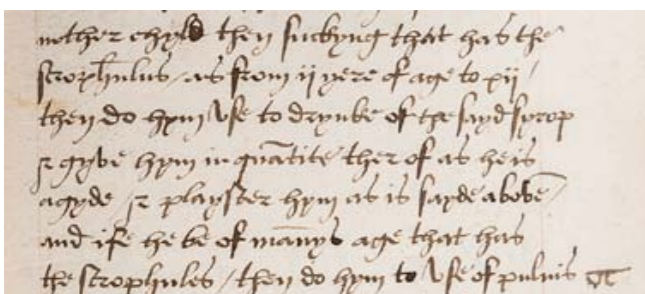 nother chyld then suckyng that has the
scrophulus / as from ij yere of age to xij /
then do hym use to drynke of the sayd syrop
& gyve hym in quātite ther of as he is
agyde / & playster hym as is sayde above
and ife he be of mānys age that has
the scrophules / then do hym to use of pulvis